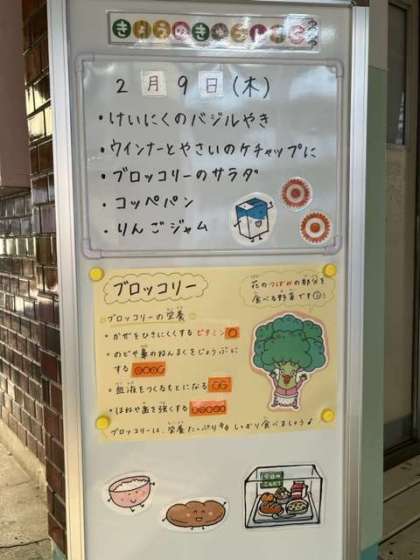 きょうのきゅうしょく
2月9日(木)
・けいにくのバジルやき
・ウインナーとやさいのケチャップに
・ブロッコリーのサラダ
・コッペパン
・りんごジャム
ブロッコリー
花のつぼみの部分を
食べる野菜です
ブロッコリーの栄養
・かぜをひきにくくするビタミン
・のどや鼻のねんまくをじょうぶに
する
・血液をつくるもとになる
・ほねや歯を強くする
ブロッコリーは、栄養たっぷり しっかり食べましょう♪